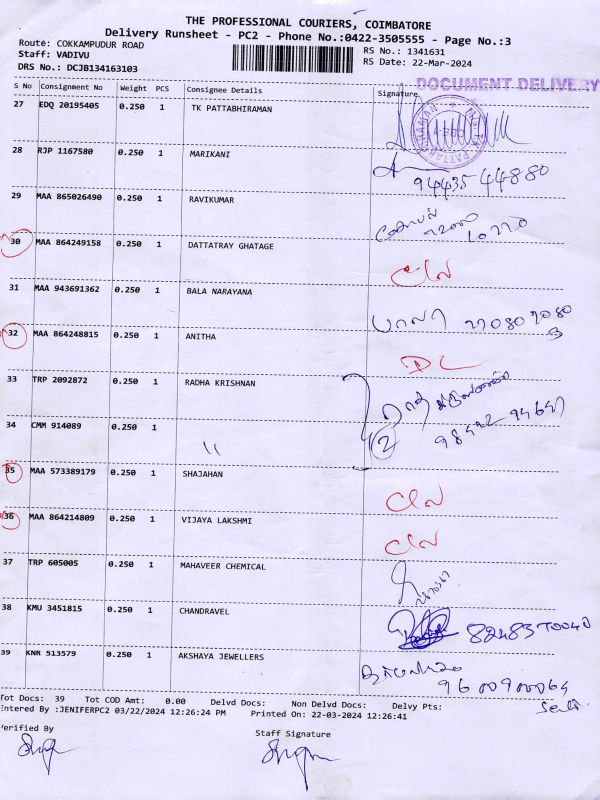 THE PROFESSIONAL COURIERS, COIMBATORE
Delivery Runsheet - PC2 - Phone No.:0422-3505555 - Page No.:3
Route: COKKAMPUDUR ROAD
Staff: VADIVU
DRS No.: DCJB134163103
RS No.: 1341631
RS Date: 22-Mar-2024
DOCUMENT DELIVERY
S No Consignment No Weight PCS Consignee Details Signature
27 EDQ 20195405 0.250 1 TK PATTABHIRAMAN
28 RJP 1167580 0.250 1 MARIKANI
94435 44880
29 MAA 865026490 0.250 1 RAVIKUMAR
30 MAA 864249158 0.250 1 DATTATRAY GHATAGE
31 MAA 943691362 0.250 1 BALA NARAYANA
பாலா
32 MAA 864248815 0.250 1 ANITHA
DL
33 TRP 2092872 0.250 1 RADHA KRISHNAN
34 CMM 914089 0.250 1 "
2
35 MAA 573389179 0.250 1 SHAJAHAN
36 MAA 864214809 0.250 1 VIJAYA LAKSHMI
37 TRP 605005 0.250 1 MAHAVEER CHEMICAL
38 KMU 3451815 0.250 1 CHANDRAVEL
39 KNR 513579 0.250 1 AKSHAYA JEWELLERS
Tot Docs: 39 Tot COD Amt: 0.00 Delvd Docs: Non Delvd Docs: Delvy Pts:
Entered By :JENIFERPC2 03/22/2024 12:26:24 PM Printed On: 22-03-2024 12:26:41
Verified By
Staff Signature